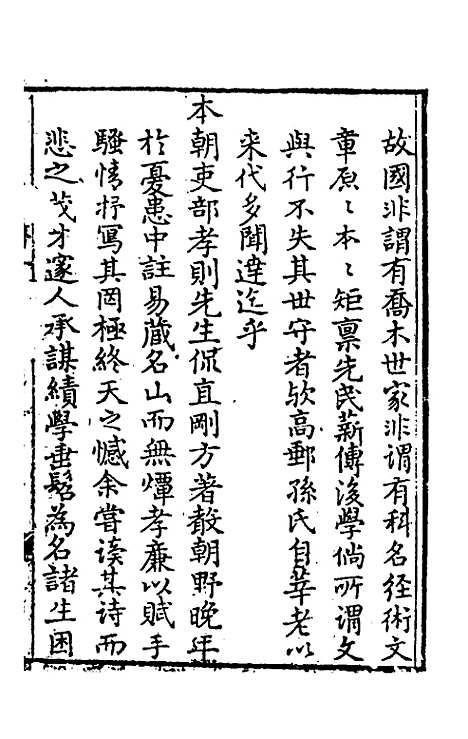 故國非謂有喬木世家非謂有科名経術文
章原〻本〻矩禀先民薪傳後學倘所謂文
與行不失其世守者欤高郵孫氏自莘老以
来代多聞達迄乎
本朝吏部孝則先生侃直剛方著聲朝野晚年
於憂患中註易蔵名山而無憚孝廉以賦手
騷情抒寫其罔極終天之憾余嘗读其诗而
悲之茂才邃人承謀績學垂髫為名諸生困